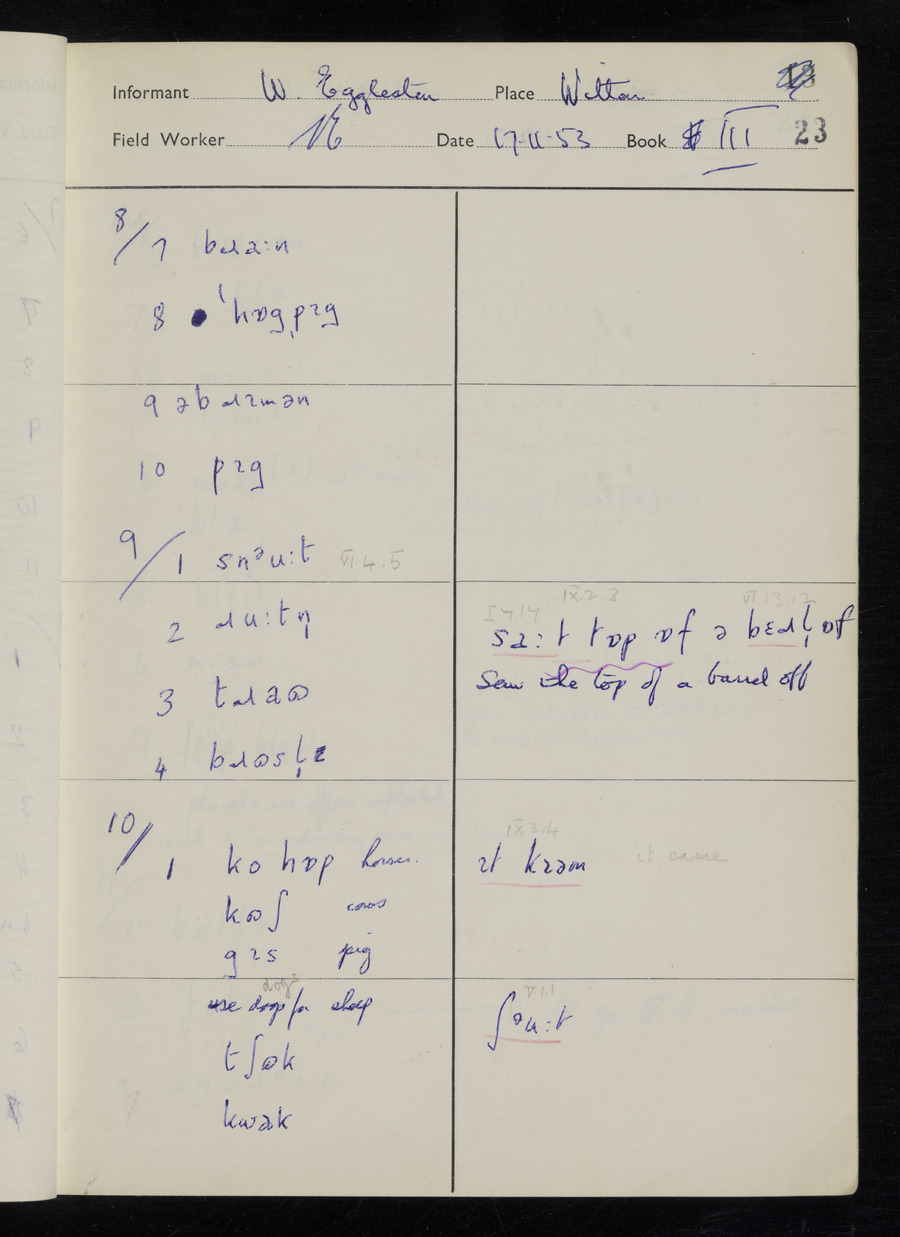 Informant W. Eggleston Place Witton
Field Worker Date 17-11-53 Book III 23
8/7 bɹaːn
8 ˈhɒgˌpɪg
9 əbɹɪmən
10 pɪg
9/1 snᵊuːt VI.4.5
2 ɹuːtn̩
3 tɹaɷ
4 bɹɷsl̩z
10/1 kɔ hɒp horses.
kɷʃ cows
gɪs pig
dogs
use dogs for sheep
tʃɷk
kwak
I.7.17 IX.2.3 VI.13.12
saːt tɒp ɒf ə bɛɹl̩ ɒf
Saw the top of a barrel off
IX.3.4
ɪt kɪəm it came
V.1.1
ʃᵊuːt